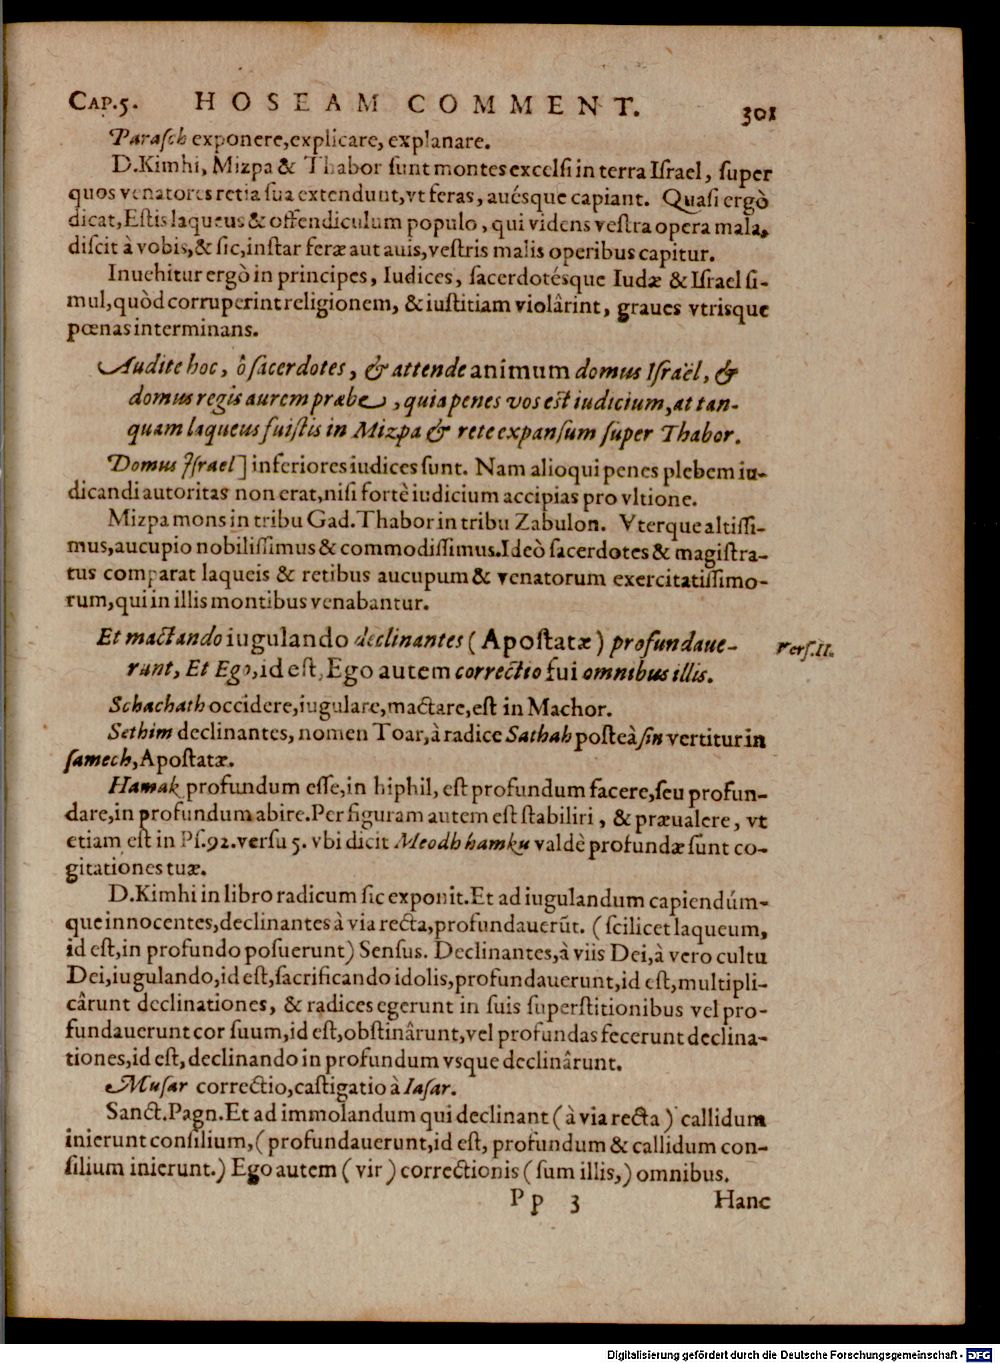 CAP.5. HOSEAM COMMENT. 301
Parasch exponere,explicare, explanare.
D.Kimhi, Mizpa & Thabor sunt montes excelsi in terra Israel, super
quos venatores retia sua extendunt,vt feras, auésque capiant. Quasi ergò
dicat,Estis laqueus & offendiculum populo, qui videns vestra opera mala,
discit à vobis,& sic,instar feræ aut auis,vestris malis operibus capitur.
Inuehitur ergò in principes, Iudices, sacerdotésque Iudæ & Israel si-
mul,quòd corruperint religionem, & iustitiam violârint, graues vtrisque
pœnas interminans.
Audite hoc, ô sacerdotes, & attende animum domus Israël, &
domus regis aurem præbe, quia penes vos est iudicium, at tan-
quam laqueus fuistis in Mizpa & rete expansum super Thabor.
Domus Israel] inferiores iudices sunt. Nam alioqui penes plebem iu-
dicandi autoritas non erat,nisi fortè iudicium accipias pro vltione.
Mizpa mons in tribu Gad.Thabor in tribu Zabulon. Vterque altissi-
mus,aucupio nobilissimus & commodissimus.Ideò sacerdotes & magistra-
tus comparat laqueis & retibus aucupum & venatorum exercitatissimo-
rum,qui in illis montibus venabantur.
Et mactando iugulando declinantes (Apostatæ) profundaue- Vers.II.
runt, Et Ego,id est, Ego autem correctio fui omnibus illis.
Schachath occidere,iugulare,mactare,est in Machor.
Sethim declinantes, nomen Toar,à radice Sathah posteà sin vertitur in
samech,Apostatæ.
Hamak profundum esse,in hiphil, est profundum facere,seu profun-
dare,in profundum abire.Per figuram autem est stabiliri, & præualere, vt
etiam est in Ps.92.versu 5. vbi dicit Meodh hamku valdè profundæ sunt co-
gitationes tuæ.
D.Kimhi in libro radicum sic exponit.Et ad iugulandum capiendúm-
que innocentes,declinantes à via recta,profundauerūt. (scilicet laqueum,
id est,in profundo posuerunt) Sensus. Declinantes,à viis Dei,à vero cultu
Dei,iugulando,id est,sacrificando idolis,profundauerunt,id est,multipli-
cârunt declinationes, & radices egerunt in suis superstitionibus vel pro-
fundauerunt cor suum,id est,obstinârunt,vel profundas fecerunt declina-
tiones,id est,declinando in profundum vsque declinârunt.
Musar correctio,castigatio à Iasar.
Sanct.Pagn.Et ad immolandum qui declinant (à via recta) callidum
inierunt consilium,(profundauerunt,id est, profundum & callidum con-
silium inierunt.) Ego autem (vir) correctionis (sum illis,) omnibus.
Pp 3 Hanc
Digitalisierung gefördert durch die Deutsche Forschungsgemeinschaft - DFG